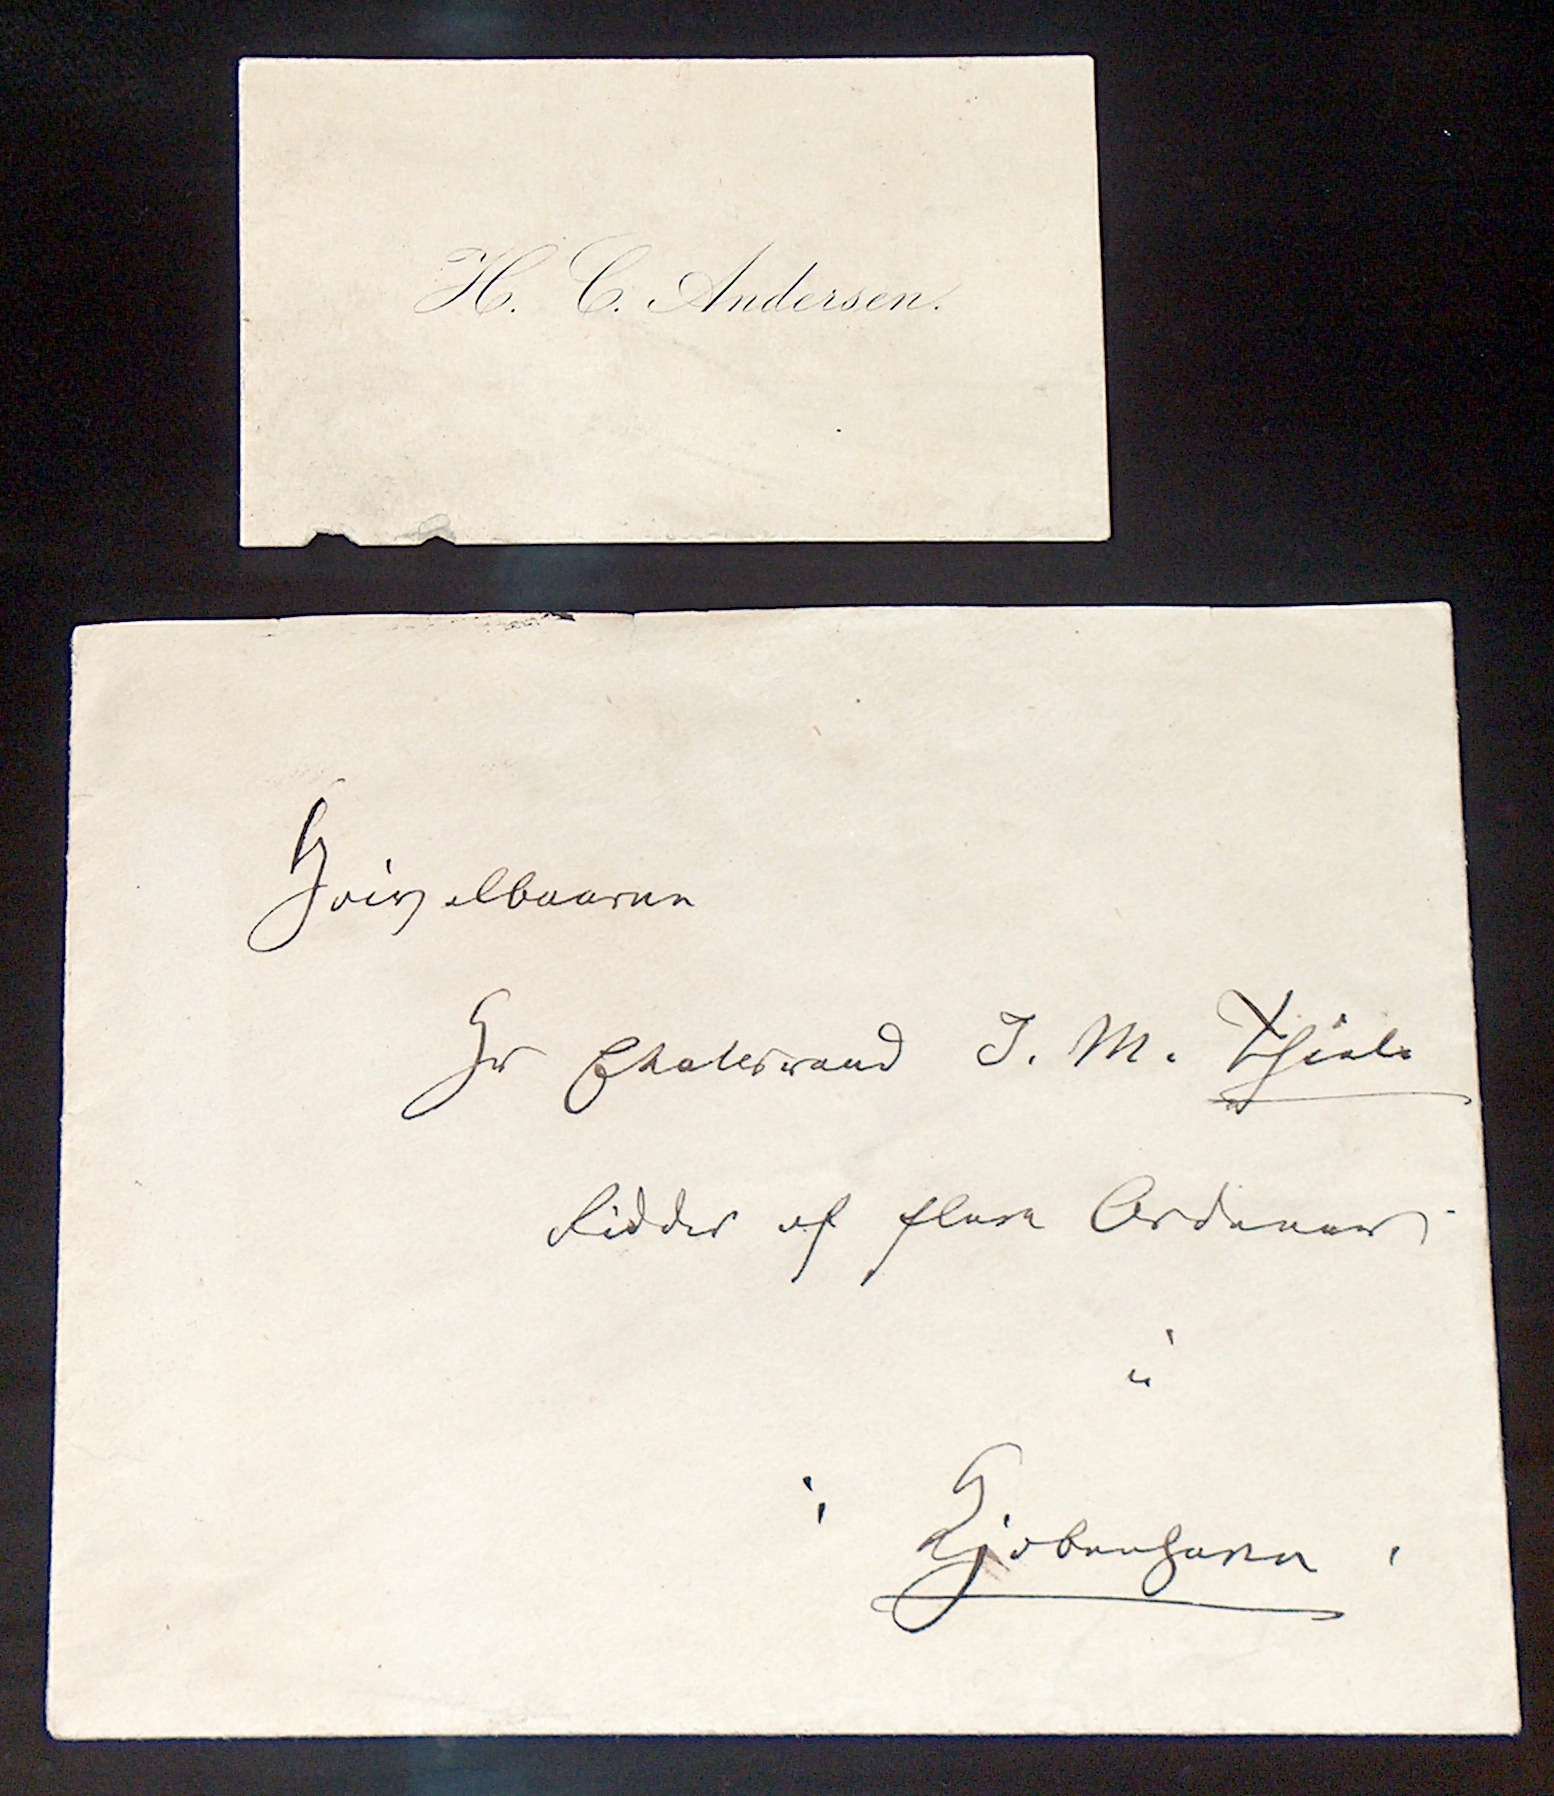 H. C. Andersen.
Høivelbaarne
Hr Etatsraad J. M. Thiele
Ridder af flere Ordener
i
Kjøbenhavn